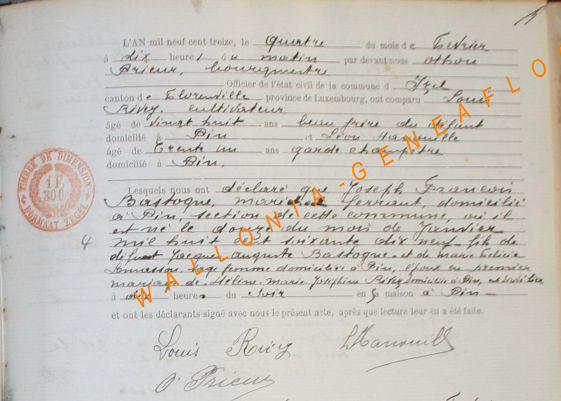 L'AN mil neuf cent treize, le quatre du mois de Février
à dix heures du matin par devant nous Othon
Prieur, bourgmestre
Officier de l'état civil de la commune d'Izel
canton de Florenville province de Luxembourg, ont comparu Louis
Rivry, cultivateur
âgé de vingt huit ans beau frère du défunt
domicilié à Pin et Léon Hanouille
âgé de trente un ans garde champêtre
domicilié à Pin,
Lesquels nous ont déclaré que Joseph François
Bastogne, domicilié
à Pin, section de cette commune, où il
est né le douze du mois de Janvier
4 mil huit cent soixante dix neuf fils de
défunt Jacques Auguste Bastogne et de Marie Felicie
sage femme domiciliée à Pin, époux en premier
mariage de Marie Joséphine domiciliée à Pin, est décédé hier
à heures du soir en sa maison à Pin
et ont les déclarants signé avec nous le présent acte, après que lecture leur en a été faite.
Louis Rivry L Hanouille
O Prieur
TIMBRE DE DIMENSION
1 F.
WALLONIA-GENEAFLO